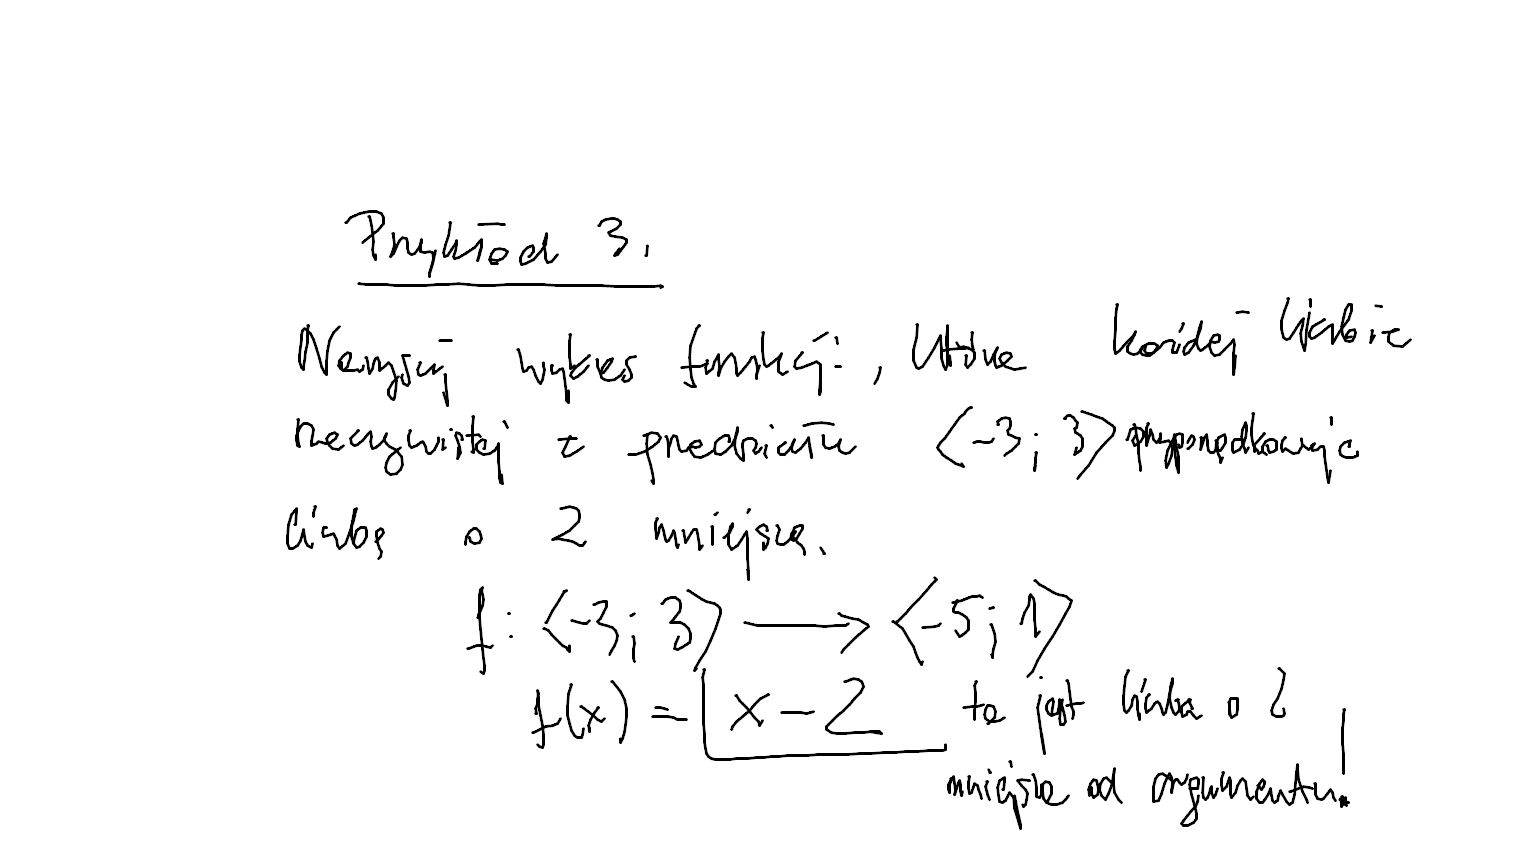 Przykład 3.
Narysuj wykres funkcji, która każdej liczbie
rzeczywistej z przedziału <-3; 3> przyporządkowuje
liczbę o 2 mniejszą.
f: <-3; 3> → <-5; 1>
f(x) = x - 2 to jest liczba o 2
mniejsza od argumentu!